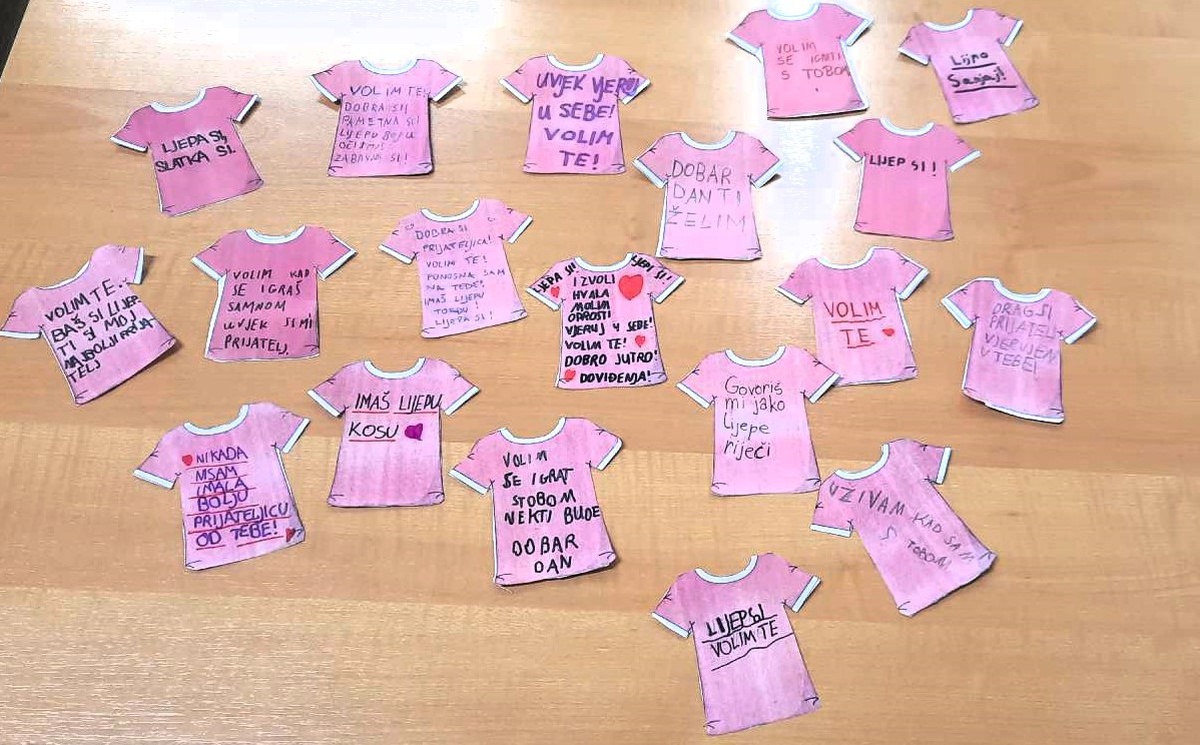 VOLIM
SE IGRTI
S TOBOM
Lijpo
Sanjaj!
LIJEPA SI,
SLATKA SI.
VOLIM TE!
DOBRA SI!
PAMETNA SI!
LIJEPU BOJU
OČI IMAŠ
ZABAVNA SI!
UVJEK VJERUJ
U SEBE!
VOLIM
TE!
DOBAR
DAN TI
ŽELIM
LIJEP SI!
VOLIM TE.
BAŠ SI LIJEP
TI SI MOJ
NAJBOLJI PRIJA-
TELJ
VOLIM KAD
SE IGRAŠ
SAMNOM
UVJEK SI MI
PRIJATELJ.
DOBRA SI
PRIJATELJICA!
VOLIM TE!
PONOSNA SAM
NA TEBE!
IMAŠ LIJEPU
TORBU!
LIJEPA SI!
LJEPA SI!
LJEPI SI!
IZVOLI
HVALA
MOLIM
OPROSTI
VJERUJ U SEBE!
VOLIM TE!
DOBRO JUTRO!
DOVIĐENJA!
VOLIM
TE
DRAG SI
PRIJATELJ
VJERUJEM
U TEBE!
NIKADA
NISAM
IMALA
BOLJU
PRIJATELJICU
OD TEBE!
IMAŠ LIJEPU
KOSU
VOLIM
SE IGRAT
STOBOM
NEKTI BUDE
DOBAR
DAN
Govoriš
mi jako
lijepe
riječi
UŽIVAM KAD SAM
S TOBOM
LIJEP SI
VOLIM TE